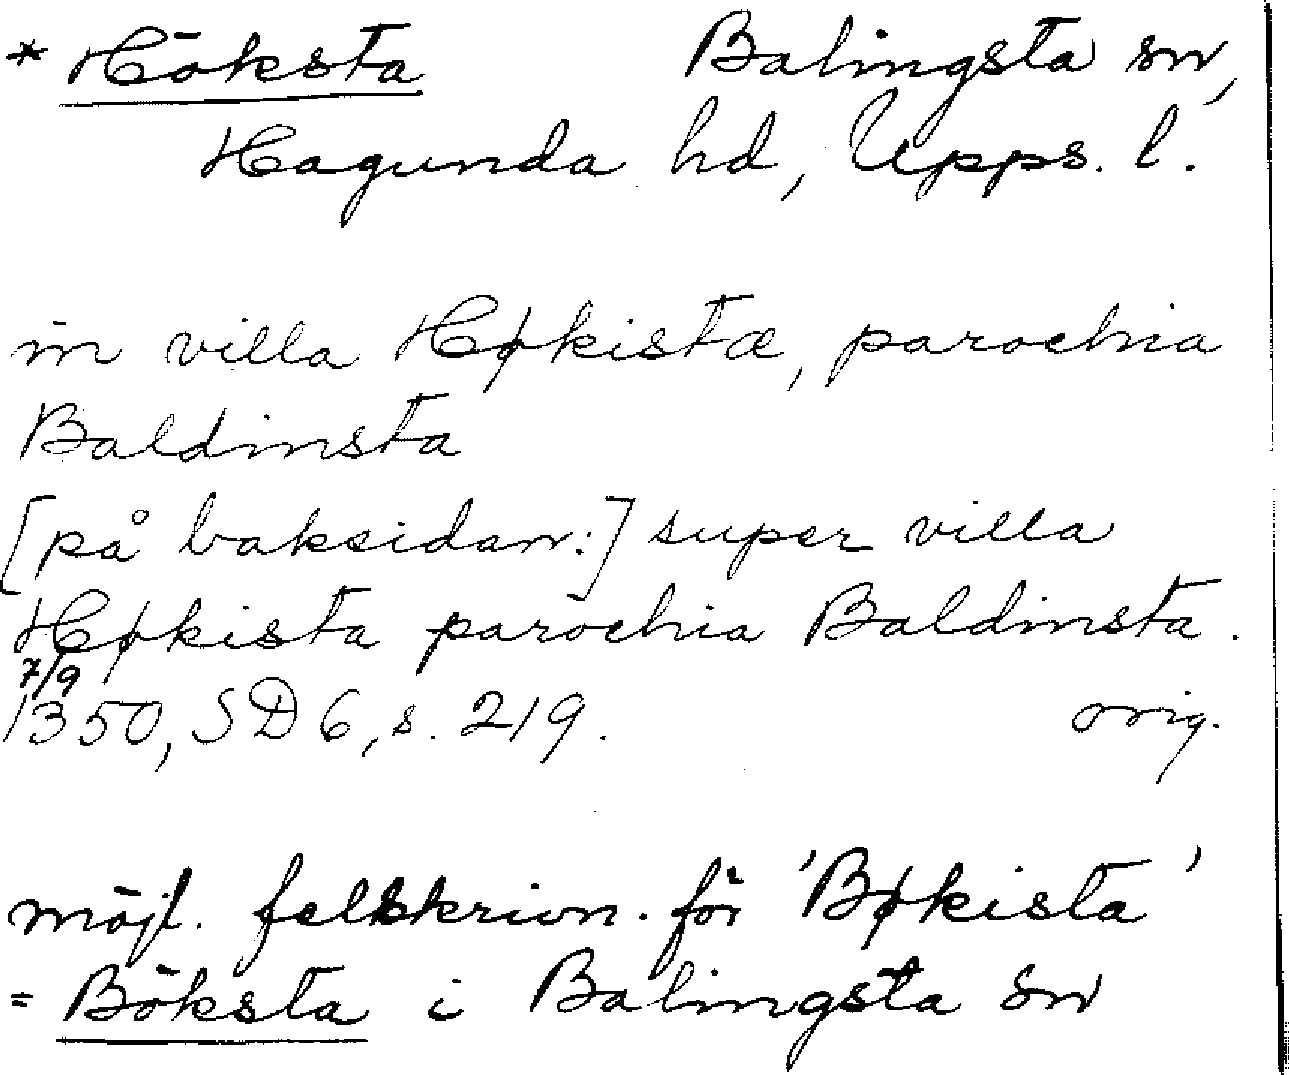 * Höksta Balingsta sn,
Hagunda hd, Upps. l.
in villa Høkistæ, parochia
Baldinsta
[på baksidan:] super villa
Høkista parochia Baldinsta.
7/9
1350, SD 6, s. 219. orig.
möjl. felskrivn. för 'Bøkista'
= Böksta i Balingsta sn